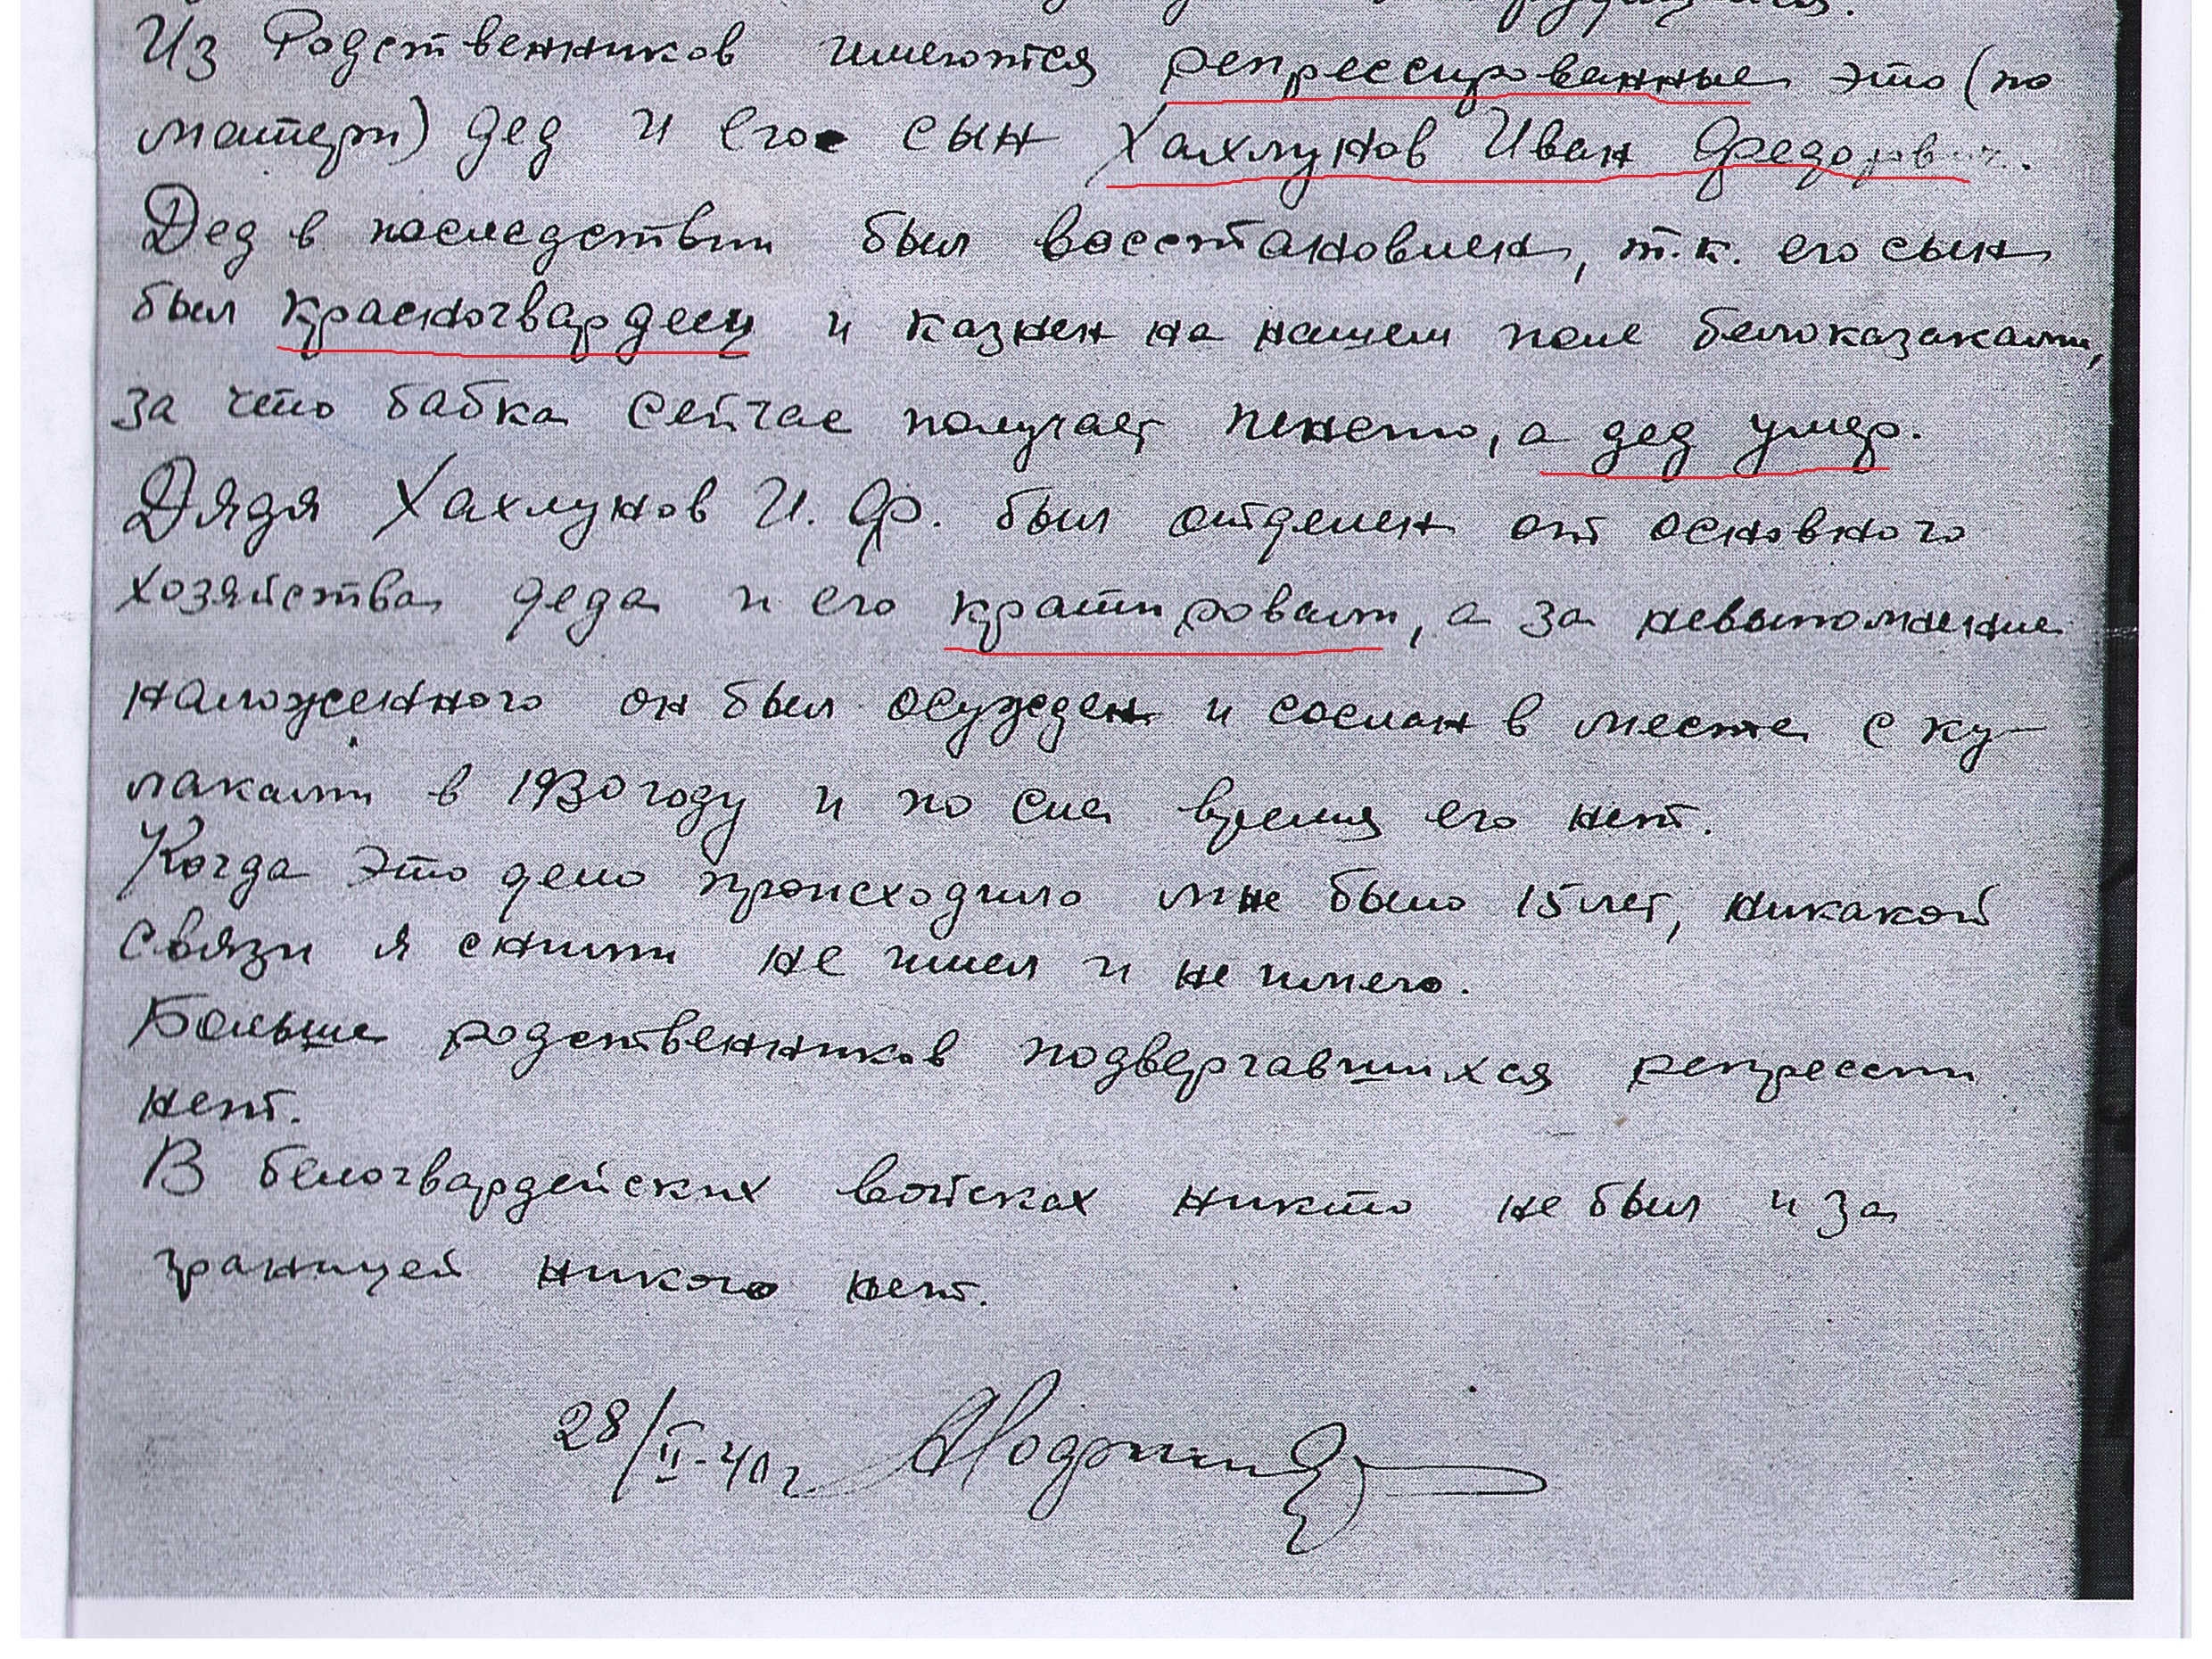 Из Родственников имеются репрессированные это (по
матери) дед и его сын Хахлунов Иван Федорович.
Дед в последствии был восстановлен, т.к. его сын
был красногвардеец и казнен на нашем поле белоказаками,
за что бабка сейчас получает пенсию, а дед умер.
Дядя Хахлунов И. Ф. был отделен от основного
хозяйства деда и его кратировали, а за невыполнение
наложенного он был осужден и сослан в месте с ку-
лаками в 1930 году и по сие время его нет.
Когда это дело происходило мне было 15 лет, никакой
связи я с ними не имел и не имею.
Больше родственников подвергавшихся репрессии
нет.
В белогвардейских войсках никто не был и за
границей никого нет.
28/II-40 г